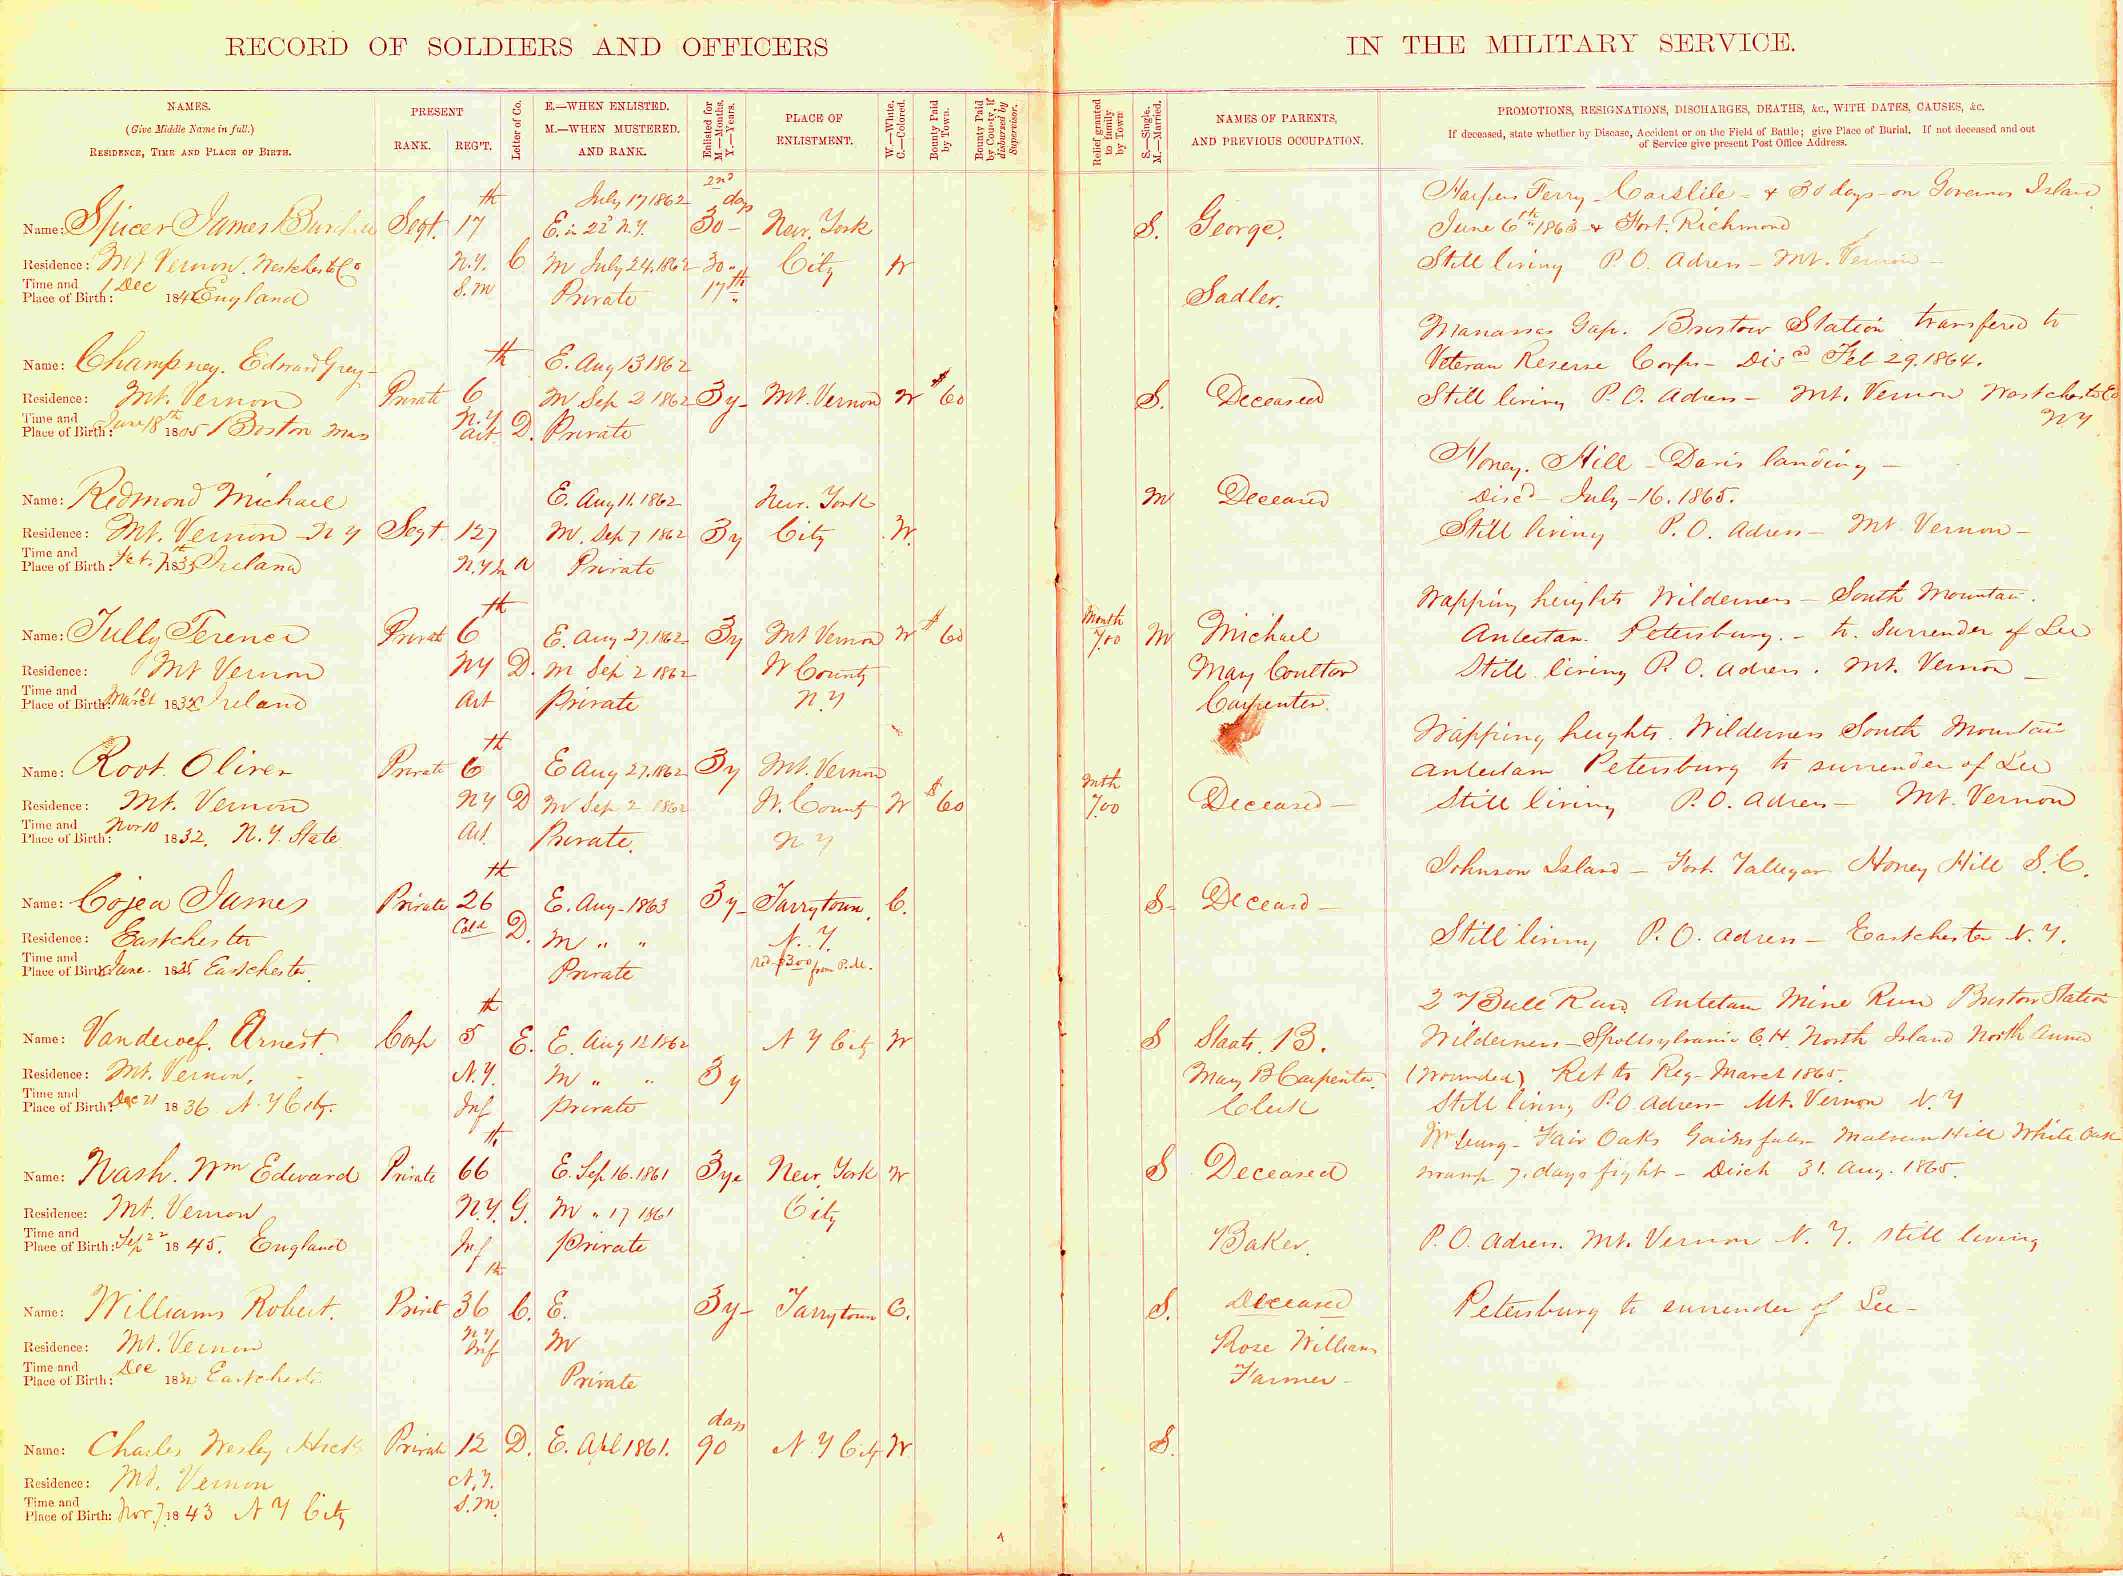 RECORD OF SOLDIERS AND OFFICERS IN THE MILITARY SERVICE.
NAMES.
(Give Middle Name in full.)
RESIDENCE, TIME AND PLACE OF BIRTH.
PRESENT
RANK. REG'T.
Letter of Co.
E.—WHEN ENLISTED.
M.—WHEN MUSTERED.
AND RANK.
Enlisted for
M.—Months.
Y.—Years.
PLACE OF
ENLISTMENT.
W.—White.
C.—Colored.
Bounty Paid
by Town.
Bounty Paid
by County, if
disbursed by
Supervisor.
Relief granted
to family
by Town
S.—Single.
M.—Married.
NAMES OF PARENTS,
AND PREVIOUS OCCUPATION.
PROMOTIONS, RESIGNATIONS, DISCHARGES, DEATHS, &c., WITH DATES, CAUSES, &c.
If deceased, state whether by Disease, Accident or on the Field of Battle; give Place of Burial. If not deceased and out
of Service give present Post Office Address.
July 17 1862 2nd days Harpers Ferry - Carslile - & 30 days - on Governors Island
Name: Spicer James Sergt. 17th E. in 22d N.Y. 30 - New. York S. George. June 6th 1863 & Fort. Richmond
Residence: Mt Vernon. Westchester Co N.Y. C M July 24. 1862 30 " City W Still living P. O. Adress - Mt. Vernon -
Time and
Place of Birth: 1 Dec 184 England S. M Private 17th Sadler.
Manassas Gap. Bristow Station transfered to
Name: Champney. Edward Grey - th E. Aug 13 1862 Veteran Reserve Corps - Disd Feb 29. 1864.
Residence: Mt. Vernon Private 6 M Sep 2 1862 3y - Mt. Vernon W $60 S. Deceased Still living P. O. Adress - Mt. Vernon Westchester Co
Time and
Place of Birth: June 18th 1805 Boston Mas N.Y. Art D. Private N Y
Honey. Hill - Davis landing -
Name: Redmond Michael E. Aug 11. 1862 New. York M Deceased Discd - July - 16. 1865.
Residence: Mt. Vernon - N Y Sergt. 127 M. Sep 7 1862 3y City W. Still living P. O. Adress - Mt Vernon -
Time and
Place of Birth: Feb. 7th Ireland N.Y Private
Wapping heights Wilderness - South Mountain.
Name: Tully Terence Private 6th E. Aug 27. 1862 3y Mt Vernon W $60 Month 7.00 M Michael Antietam. Petersburg. - to. Surrender of Lee
Residence: Mt Vernon NY D. M Sep 2 1862 W County Mary Coulter Still living P. O. adress. Mt. Vernon
Time and
Place of Birth: March 183 Ireland Art Private N. Y Carpenter.
Wapping heights. Wilderness South Mountain
Name: Root. Oliver Private 6th E Aug 27. 1862 3y Mt. Vernon mth Antietam Petersburg to surrender of Lee
Residence: Mt. Vernon NY D M Sep 2 1862 W. County W $60 7.00 Deceased - Still living P. O. Adress - Mt. Vernon
Time and
Place of Birth: Nov 10 1832. N. Y. State Art. Private. N Y
Johnson Island - Fort. Honey Hill S. C.
Name: Cojea James Private 26th E. Aug - 1863 3y - Tarrytown. C. S - Deceasd -
Residence: Eastchester Cold D. M " " N. Y. Still living P. O. adress - Eastchester N. Y.
Time and
Place of Birth: June. 18 Eastchester. Private $300 from P.M.
2 Bull Run Antetam Mine Run Bristow Station
Name: Vanderoef. Arnest. Corp 5th E. E. Aug 12 1862 N Y City W S Staats. B. Wilderness - Spottsylvania C. H. North Island North Anna
Residence: Mt. Vernon. N. Y. M " " 3y Mary B Carpenter. (Wounded) Ret to Reg - March 1865.
Time and
Place of Birth: Dec 21 1836 N. Y City. Inf Private Clerk Still living P. O adress - Mt. Vernon N. Y
Wmsburg - Fair Oaks Gaines Malvern Hill White Oak
Name: Nash. Wm Edward Private 66th E. Sep 16. 1861 3ye New. York W S Deceased swamp 7. days fight - Disch 31. Aug. 1865.
Residence: Mt. Vernon N. Y. G. M " 17 1861 City
Time and
Place of Birth: Sep 22 1845. England Inf Private Baker. P. O. Adress. Mt. Vernon N. Y. still living
Name: Williams Robert. Privet 36th C. E. 3y - Tarrytown C. S. Deceased Petersburg to surrender of Lee -
Residence: Mt. Vernon N Y M Rose Williams
Time and
Place of Birth: Dec 18 Eastchester Inf Private Farmer -
days
Name: Charles Wesley Hick Private 12 D. E. Apl 1861. 90 N. Y City W S.
Residence: Mt. Vernon N. Y.
Time and
Place of Birth: Nov. 7. 1843 N Y City S. M.